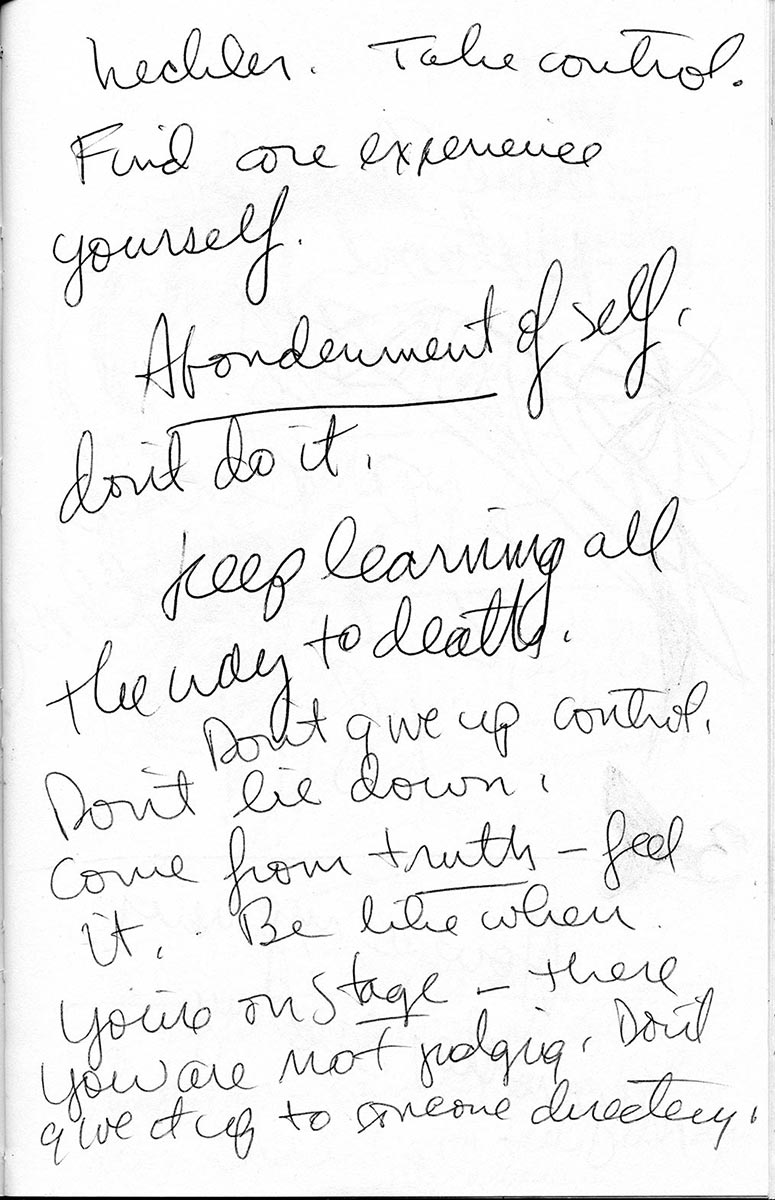 heckler. Take control.
Find core experience
yourself.
Abondenment of self.
don't do it.
Keep learning all
the way to death.
Don't give up control.
Don't lie down.
Come from truth – feel
it. Be like when
you're on stage – there
you are not judging. Don't
give it up to someone directing.